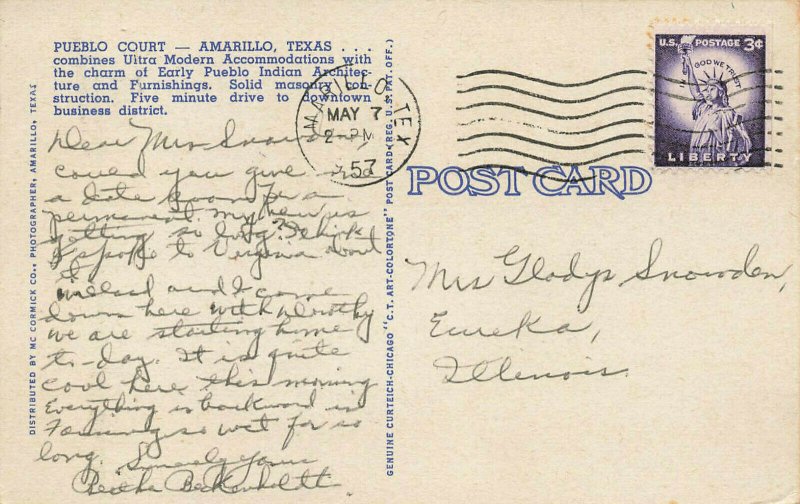 PUEBLO COURT — AMARILLO, TEXAS . . .
combines Ultra Modern Accommodations with
the charm of Early Pueblo Indian Architec-
ture and Furnishings. Solid masonry con-
struction. Five minute drive to downtown
business district.
Dear Mrs Snowden,
could you give me
a date soon for a
permanent. My hair is
getting so long. I think
I spoke to Virginia about
it
Willard and I came
down here with Dorothy
we are starting home
to-day. It is quite
cool here this morning
Everything is backward in
Farming so wet for so
long. Sincerely Yours
Bertha Beckenholdt
DISTRIBUTED BY MC CORMICK CO., PHOTOGRAPHER, AMARILLO, TEXAS
GENUINE CURTEICH-CHICAGO "C.T. ART-COLORTONE" POST CARD (REG. U.S. PAT. OFF.)
AMARILLO TEX
MAY 7
2 PM
57
U.S. POSTAGE 3¢
IN GOD WE TRUST
LIBERTY
POST CARD
Mrs Gladys Snowden,
Eureka,
Illenois.